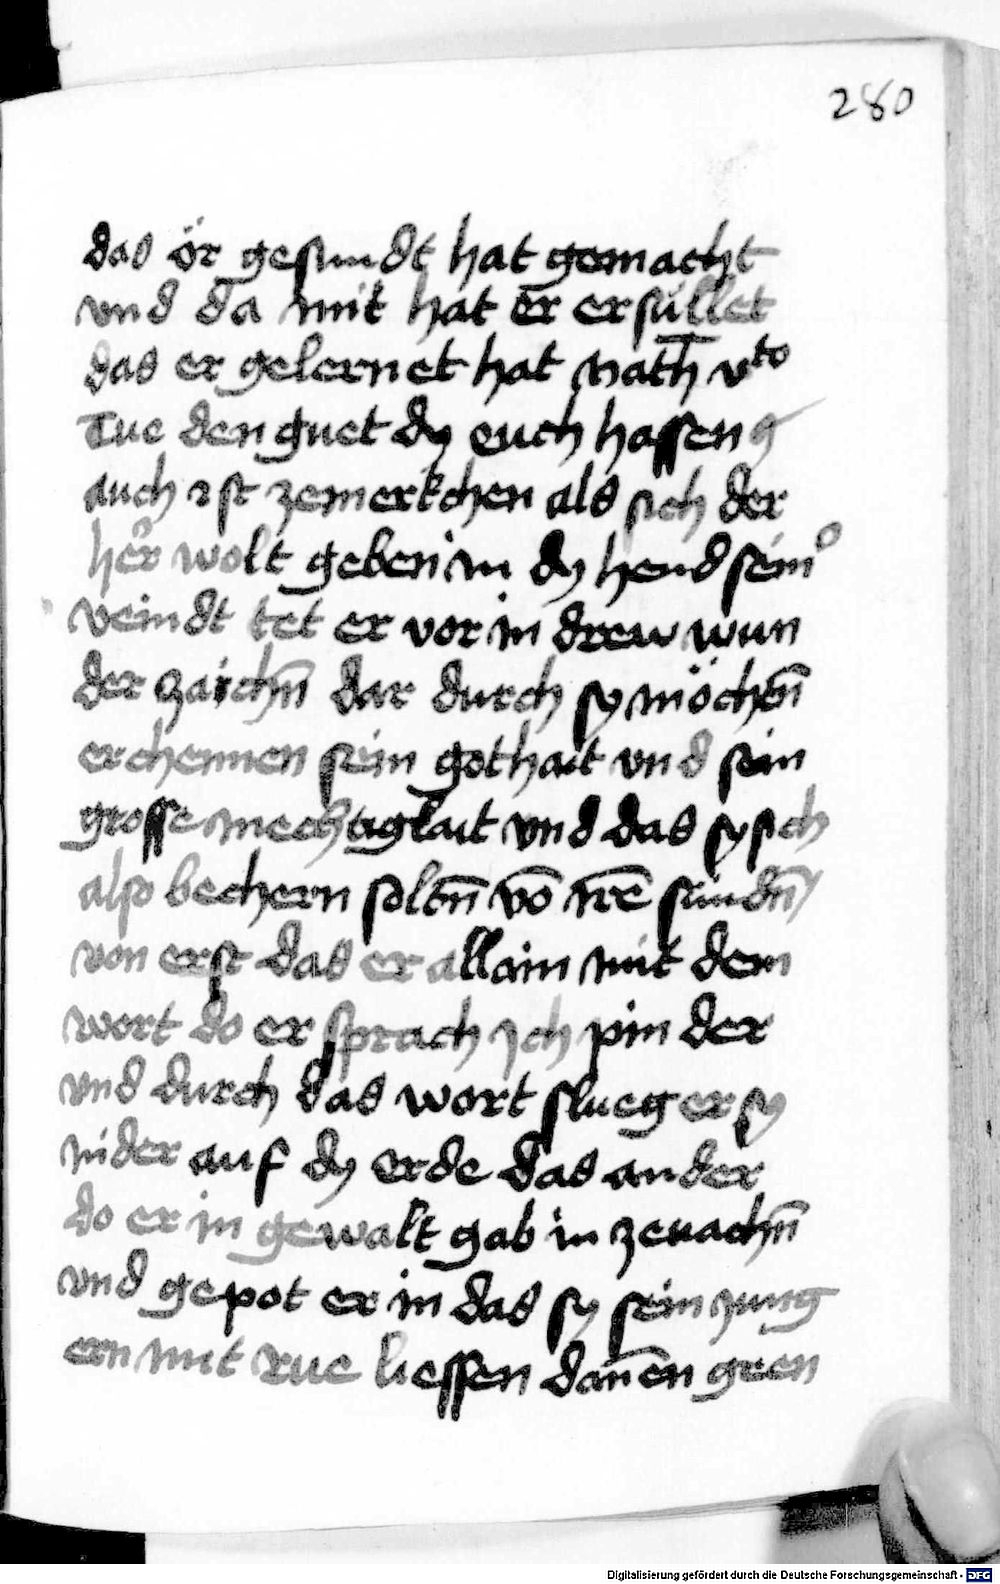 280
das ör gesundt hat gemacht
vnd da mit hat er erfüllet
das er gelernet hat math vto
Tue den guet dy euch hassen
auch ist zemerkchen als sich der
her wolt geben in dy hend sein
veindt tet er vor in drew wun
der zaichn̄ dar durch sy möchēn
erchennen sein gothait vnd sein
grosse mechtigkait vnd das sy sich
also bechern soltn̄ vō irē sündn̄
von erst das er allain mit dem
wort do er sprach Ich pin der
vnd durch das wort slueg er sy
nider auf dy erde das ander
do er in gewalt gab in zevachn̄
vnd gepot er in das sy sein jung
ern mit rue liessen dan̄en geen
Digitalisierung gefördert durch die Deutsche Forschungsgemeinschaft - DFG